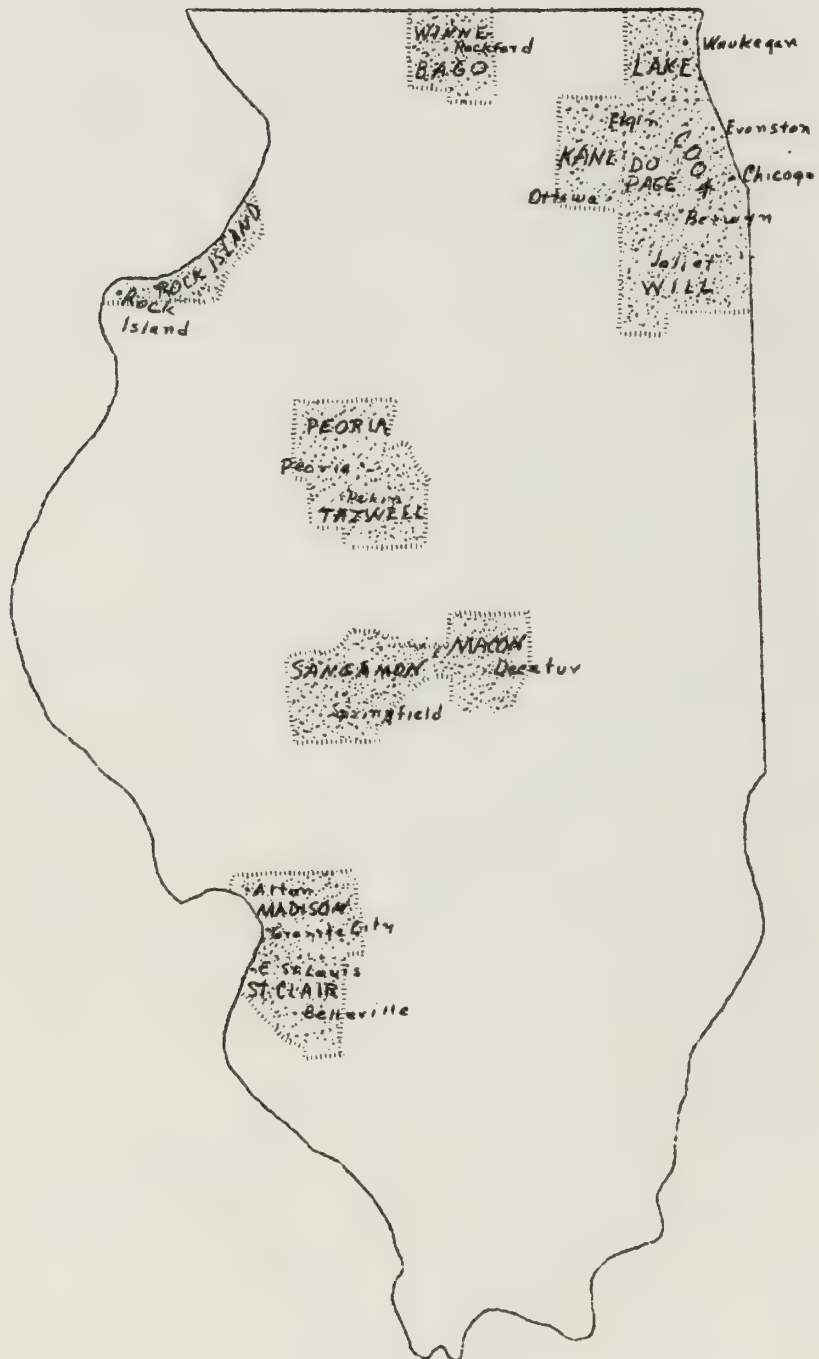 WINNE
Rockford
BAGO
Waukegan
LAKE
Elgin
Evanston
COOK
KANE
DU
PAGE
Chicago
Ottawa
Berwyn
Joliet
WILL
ROCK ISLAND
Rock
Island
PEORIA
Peoria
Pekin
TAZWELL
MACON
SANGAMON
Decatur
Springfield
Alton
MADISON
Granite City
E. St. Louis
ST. CLAIR
Belleville